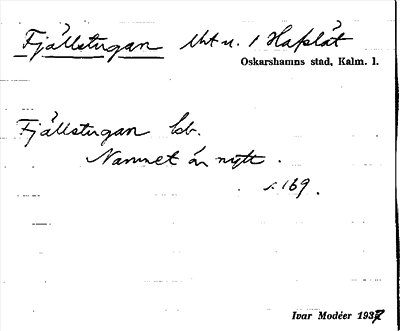 Fjällstugan Uht u. 1 Haplåt
Oskarshamns stad, Kalm. l.
Fjällstugan bb.
Namnet är nytt.
s. 169.
Ivar Modéer 1937